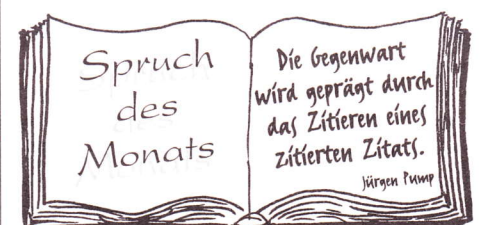 Spruch
des
Monats
Die Gegenwart
wird geprägt durch
das Zitieren eines
zitierten Zitats.
Jürgen Pump